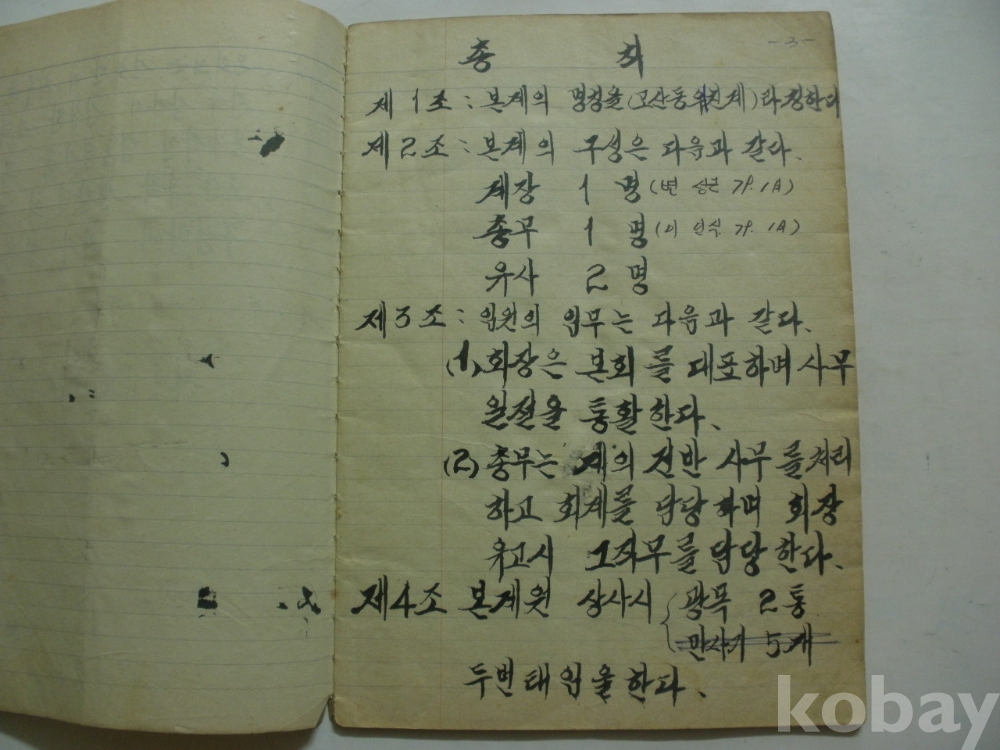 -3-
총 회
제1조: 본계의 명칭을 (고산동위친계)라칭한다
제2조: 본계의 구성은 다음과 같다.
계장 1 명 (변 성근 79. 1월)
총무 1 명 (이 인식. 79. 1월)
유사 2 명
제3조: 임원의 임무는 다음과 같다.
(1) 회장은 본회를 대표하며 사무
일절을 통활한다.
(2) 총무는 계의 전반 사무를처리
하고 회계를 담당하며 회장
유고시 그직무를 담당한다.
제4조 본계원 상사시 광목 2통
만사기 5개
두번태입을한다.
kobay